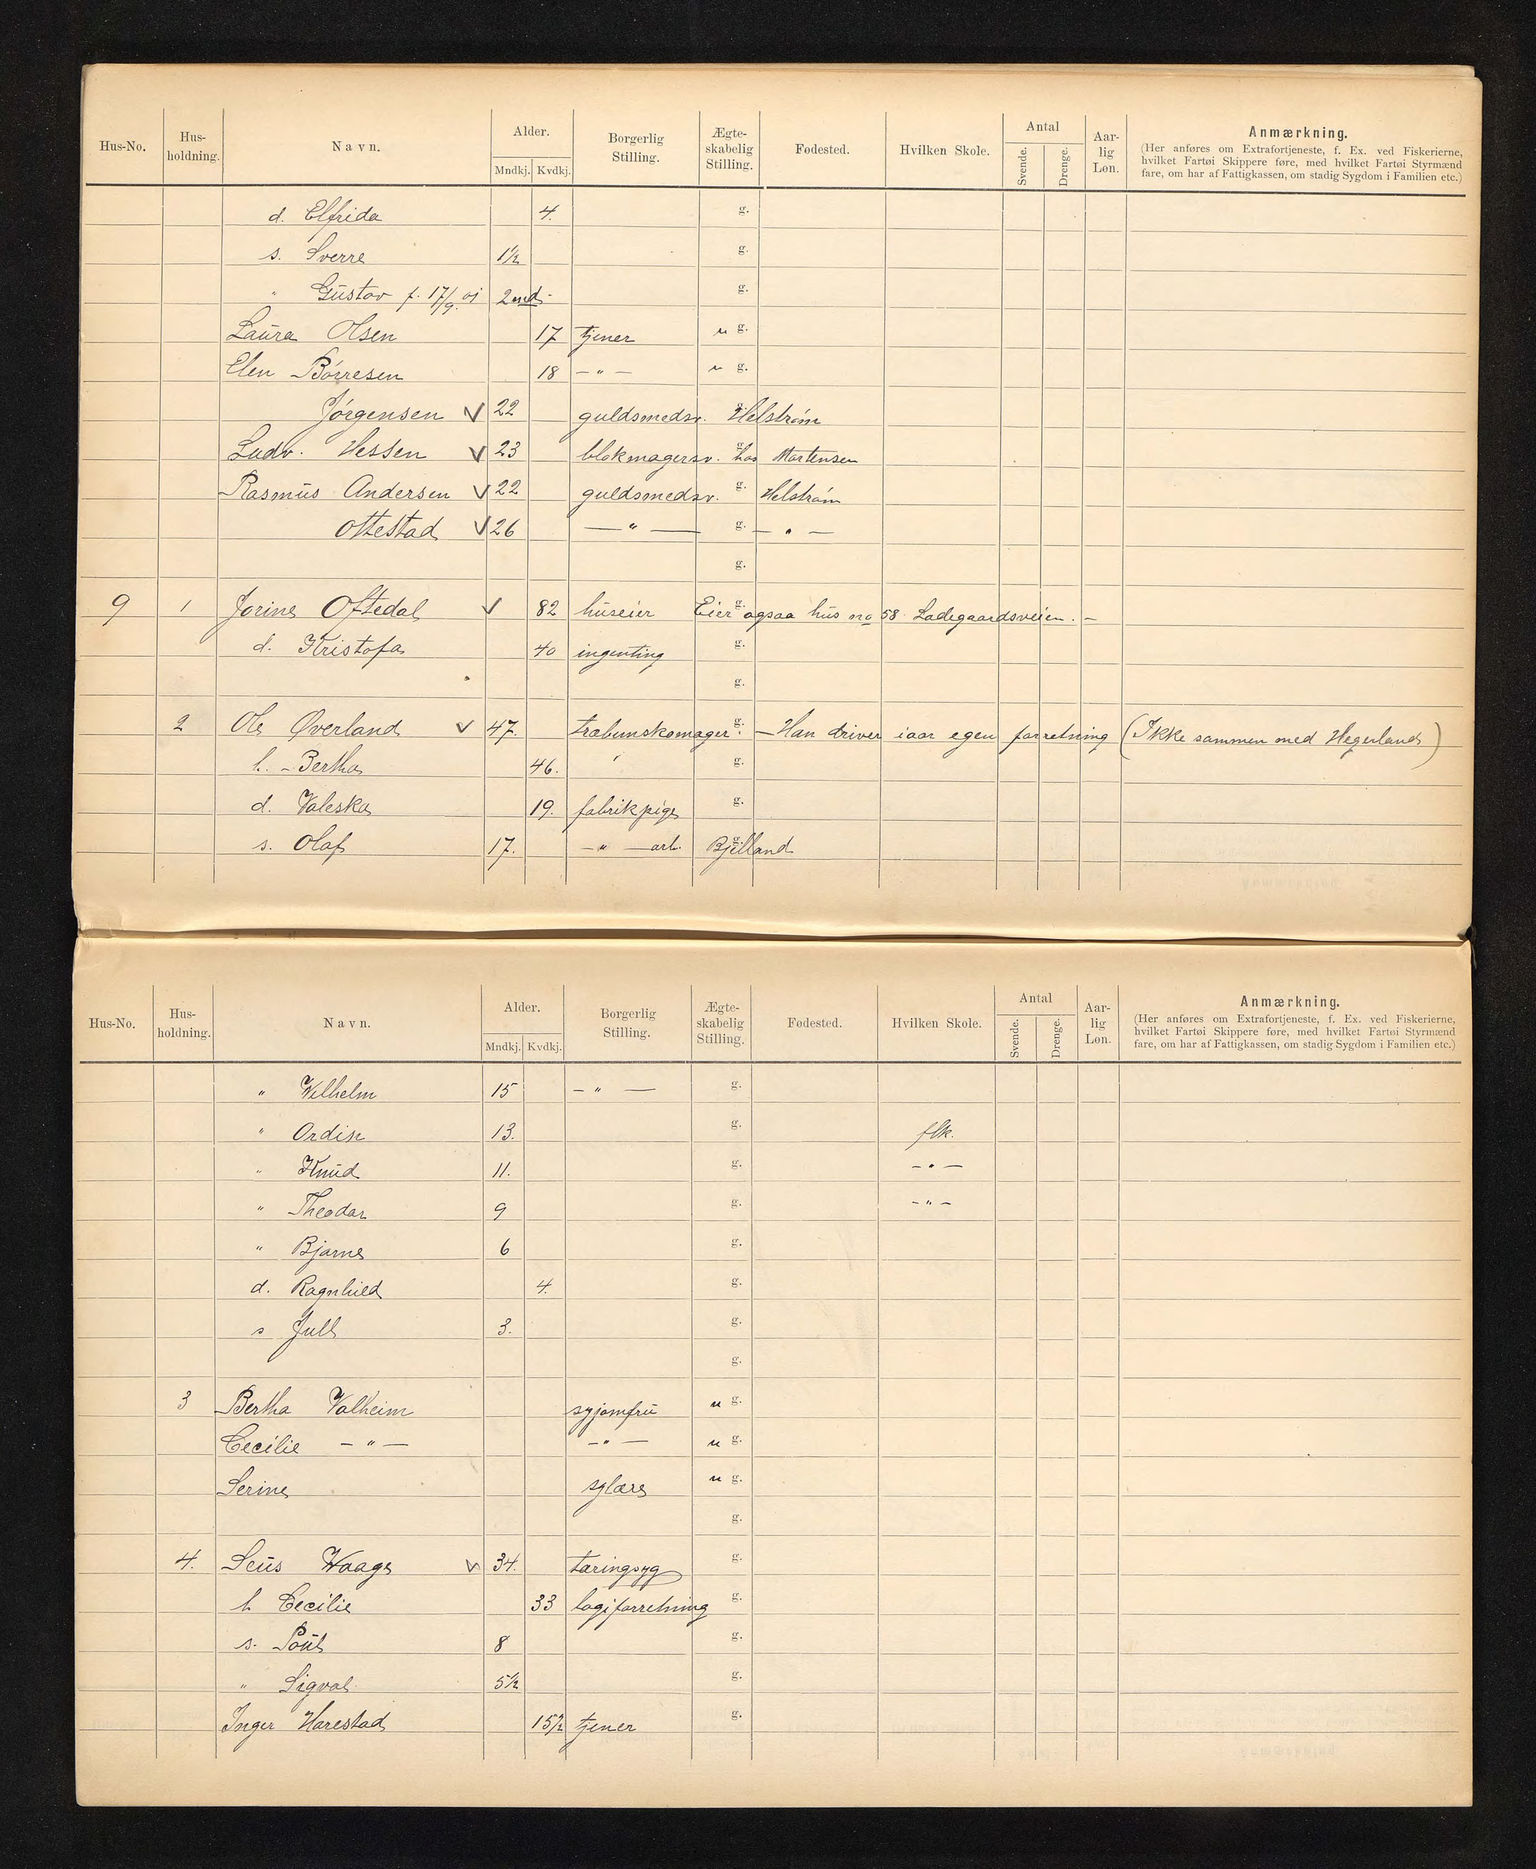 Hus-No. Hus-holdning. Navn. Alder. Mndkj. Kvdkj. Borgerlig Stilling. Ægte-skabelig Stilling. Fødested. Hvilken Skole. Antal Svende. Drenge. Aar-lig Løn. Anmærkning.
(Her anføres om Extrafortjeneste, f. Ex. ved Fiskerierne,
hvilket Fartøi Skippere føre, med hvilket Fartøi Styrmænd
fare, om har af Fattigkassen, om stadig Sygdom i Familien etc.)
d. Elfrida 4. g.
s. Sverre 1½ g.
" Gustav f. 17/9. 01 2 md. g.
Laura Olsen 17 tjener u g.
Elen Børresen 18 — " — u g.
Jørgensen V 22 guldsmedsv. g. Helstrøm
Ludv. Hessen V 23 blokmagersv. g. hos Mortensen
Rasmus Andersen V 22 guldsmedsv. g. Helstrøm
Ottestad V 26 — " — g. — " —
g.
9 1 Jorine Oftedal V 82 huseier g. Eier ogsaa hus no 58 Ladegaardsveien. —
d. Kristofa 40 ingenting g.
g.
2 Ole Øverland V 47. træbunskomager g. — Han driver iaar egen forretning (Ikke sammen med Hegerland)
h. - Bertha 46. g.
d. Valeska 19. fabrikpige g.
s. Olaf 17. — " — arb. g. Bjelland
Hus-No. Hus-holdning. Navn. Alder. Mndkj. Kvdkj. Borgerlig Stilling. Ægte-skabelig Stilling. Fødested. Hvilken Skole. Antal Svende. Drenge. Aar-lig Løn. Anmærkning.
(Her anføres om Extrafortjeneste, f. Ex. ved Fiskerierne,
hvilket Fartøi Skippere føre, med hvilket Fartøi Styrmænd
fare, om har af Fattigkassen, om stadig Sygdom i Familien etc.)
" Vilhelm 15 — " — g.
" Ordin 13. g. flk.
" Knud 11. g. — " —
" Theodor 9 g. — " —
" Bjarne 6 g.
d. Ragnhild 4. g.
s Jull 3. g.
g.
3 Bertha Valheim syjomfru u g.
Cecilie — " — — " — u g.
Serine u g.
g.
4. Seus Waage V 34. tæringsyg g.
h Cecilie 33 logiforretning g.
s. Poul 8 g.
" Sigval 5½ g.
Inger Harestad 15½ tjener g.